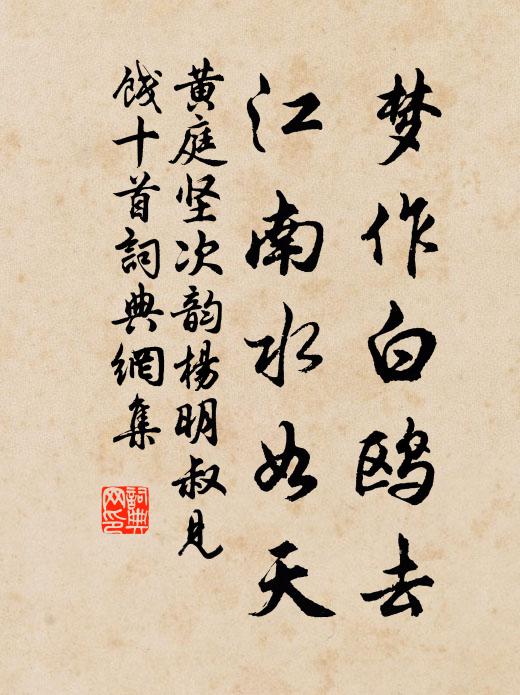 梦作白鸥去
江南水如天
黄庭坚次韵杨明叔见
饯十首詞典網集
詞典
网印